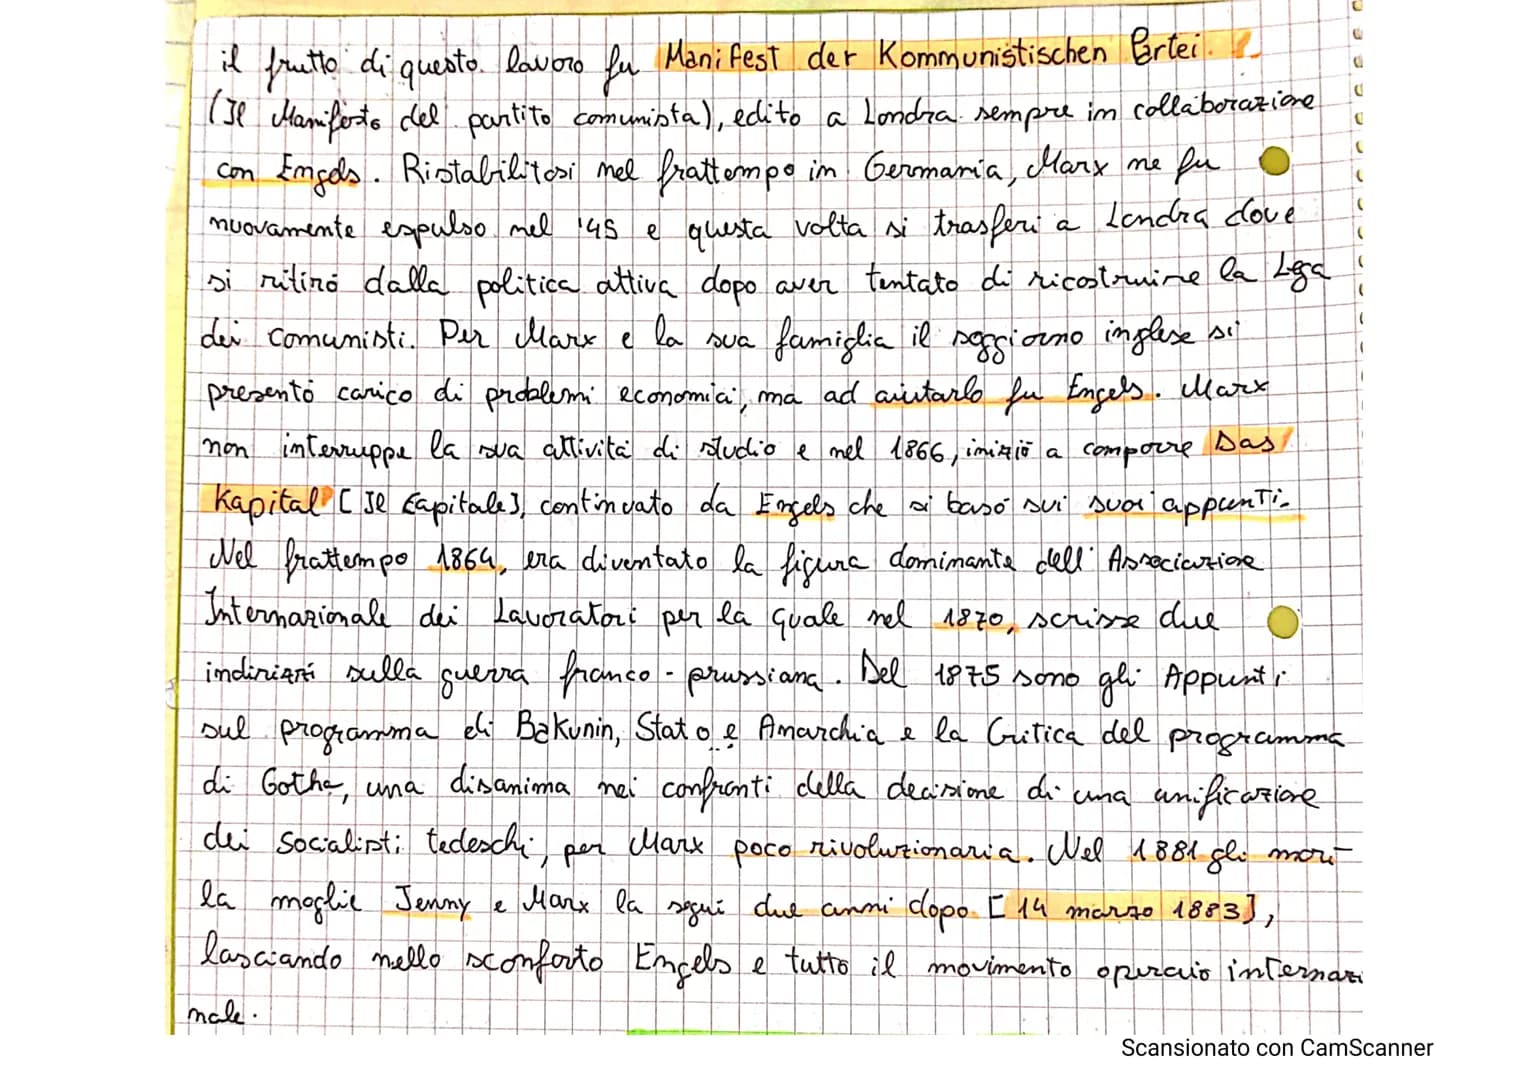 il frutto di questo lavoro fu Manifest der Kommunistischen Partei.
(Il Manifesto del partito comunista), edito a Londra sempre in collaborazione
con Engels. Ristabilitosi nel frattempo in Germania, Marx ne fu
nuovamente espulso nel '45 e questa volta si trasferì a Londra dove
si ritirò dalla politica attiva dopo aver tentato di ricostruire la Lega
dei comunisti. Per Marx e la sua famiglia il soggiorno inglese si
presentò carico di problemi economici, ma ad aiutarlo fu Engels. Marx
non interruppe la sua attività di studio e nel 1866, iniziò a comporre Das
Kapital [Il Capitale], continuato da Engels che si basò sui suoi appunti.
Nel frattempo 1864, era diventato la figura dominante dell'Associazione
Internazionale dei Lavoratori per la quale nel 1870, scrisse due
indirizzi sulla guerra franco-prussiana. Del 1875 sono gli Appunti
sul programma di Bakunin, Stato e Anarchia e la Critica del programma
di Gotha, una disanima nei confronti della decisione di una unificazione
dei Socialisti tedeschi, per Marx poco rivoluzionaria. Nel 1881 gli morì
la moglie Jenny e Marx la seguì due anni dopo [14 marzo 1883],
lasciando nello sconforto Engels e tutto il movimento operaio internazi
nale.
Scansionato con CamScanner